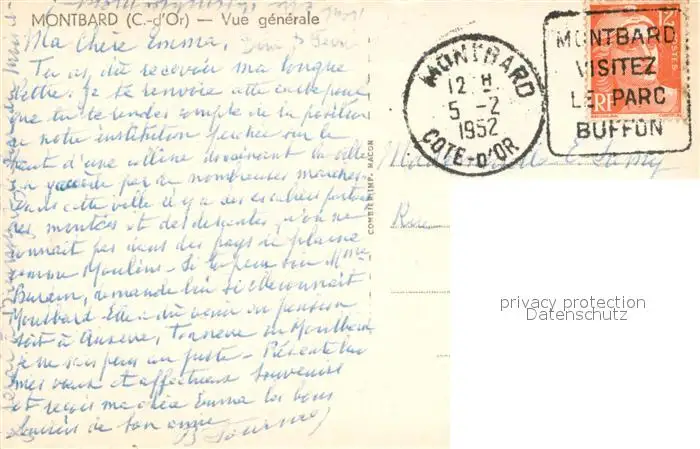 MONTBARD (C.-d'Or) — Vue générale
Ma Chère Emma,
Tu as dû recevoir ma longue
lettre. Je te renvoie cette carte pour
que tu te rendes compte de la position
de notre institution perchée sur le
haut d'une colline dominant la ville
on y accède par de nombreuses marches
dans cette ville il y a des escaliers partout
des montées et des descentes, qu'on ne
connaît pas dans des pays de plaine
comme Moulins - Si tu peux voir Mme
demande lui si elle connaît
Montbard. Elle a dû venir en pension
soit à Auxerre, Tonnerre ou Montbard,
je ne sais pas au juste - Présente lui
mes vœux et affectueux souvenirs
et reçois ma chère Emma les bons
baisers de ton amie
B Tournay
COMBIER IMP. MACON
MONTBARD
12 H
5 -2
1952
COTE-D'OR
MONTBARD
VISITEZ
LE PARC
BUFFON
12F
POSTES
RF
Rue
privacy protection
Datenschutz